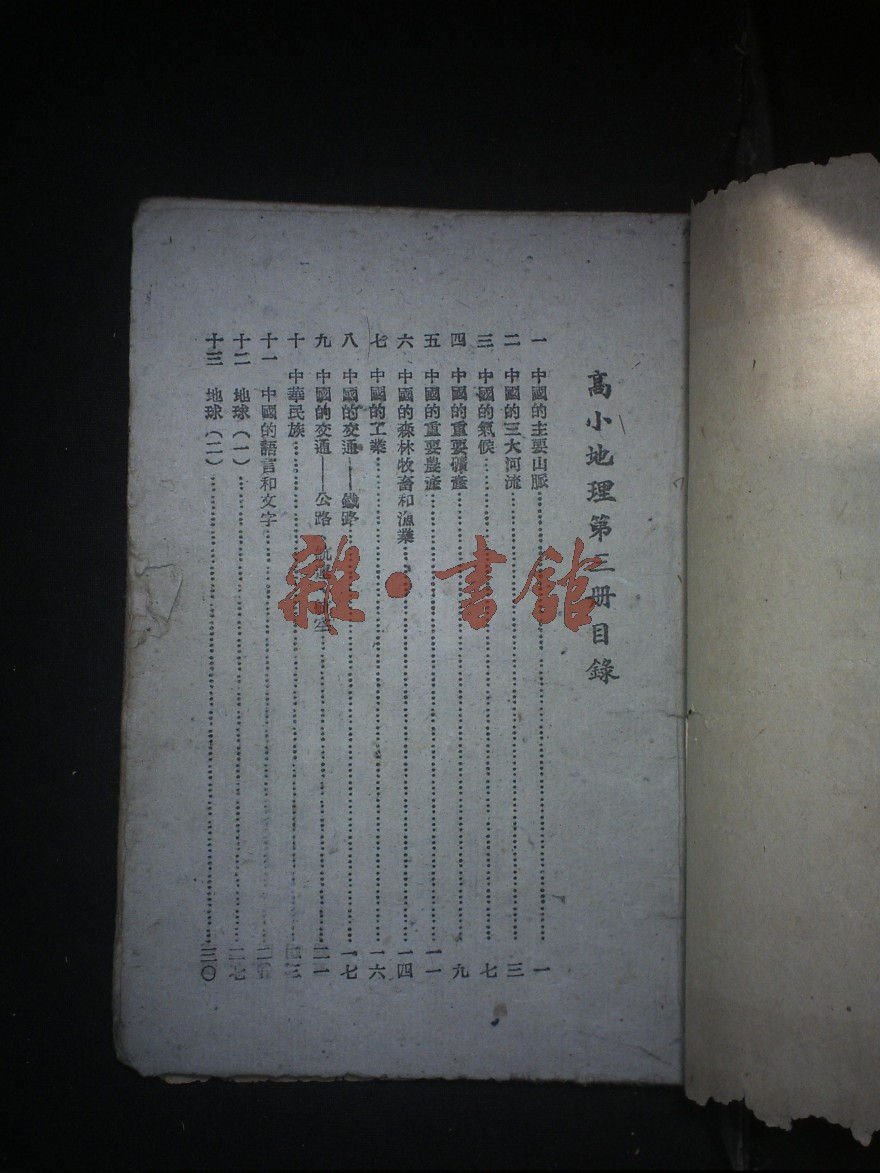 高小地理第三册目錄
一 中國的主要山脈……一
二 中國的三大河流……三
三 中國的氣候……七
四 中國的重要礦產……九
五 中國的重要農產……一一
六 中國的森林牧畜和漁業……一四
七 中國的工業……一六
八 中國的交通——鐵路……一七
九 中國的交通——公路……二一
十 中華民族……二三
十一 中國的語言和文字……
十二 地球(一)……二七
十三 地球(二)……三〇
雜·書館